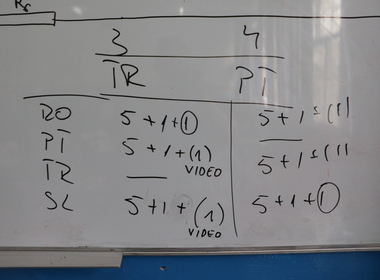 3 4
TR PT
RO 5+1+1 5+1
PT 5+1+(1)
VIDEO
TR — 5+1
SL 5+1+(1) 5+1+1
VIDEO